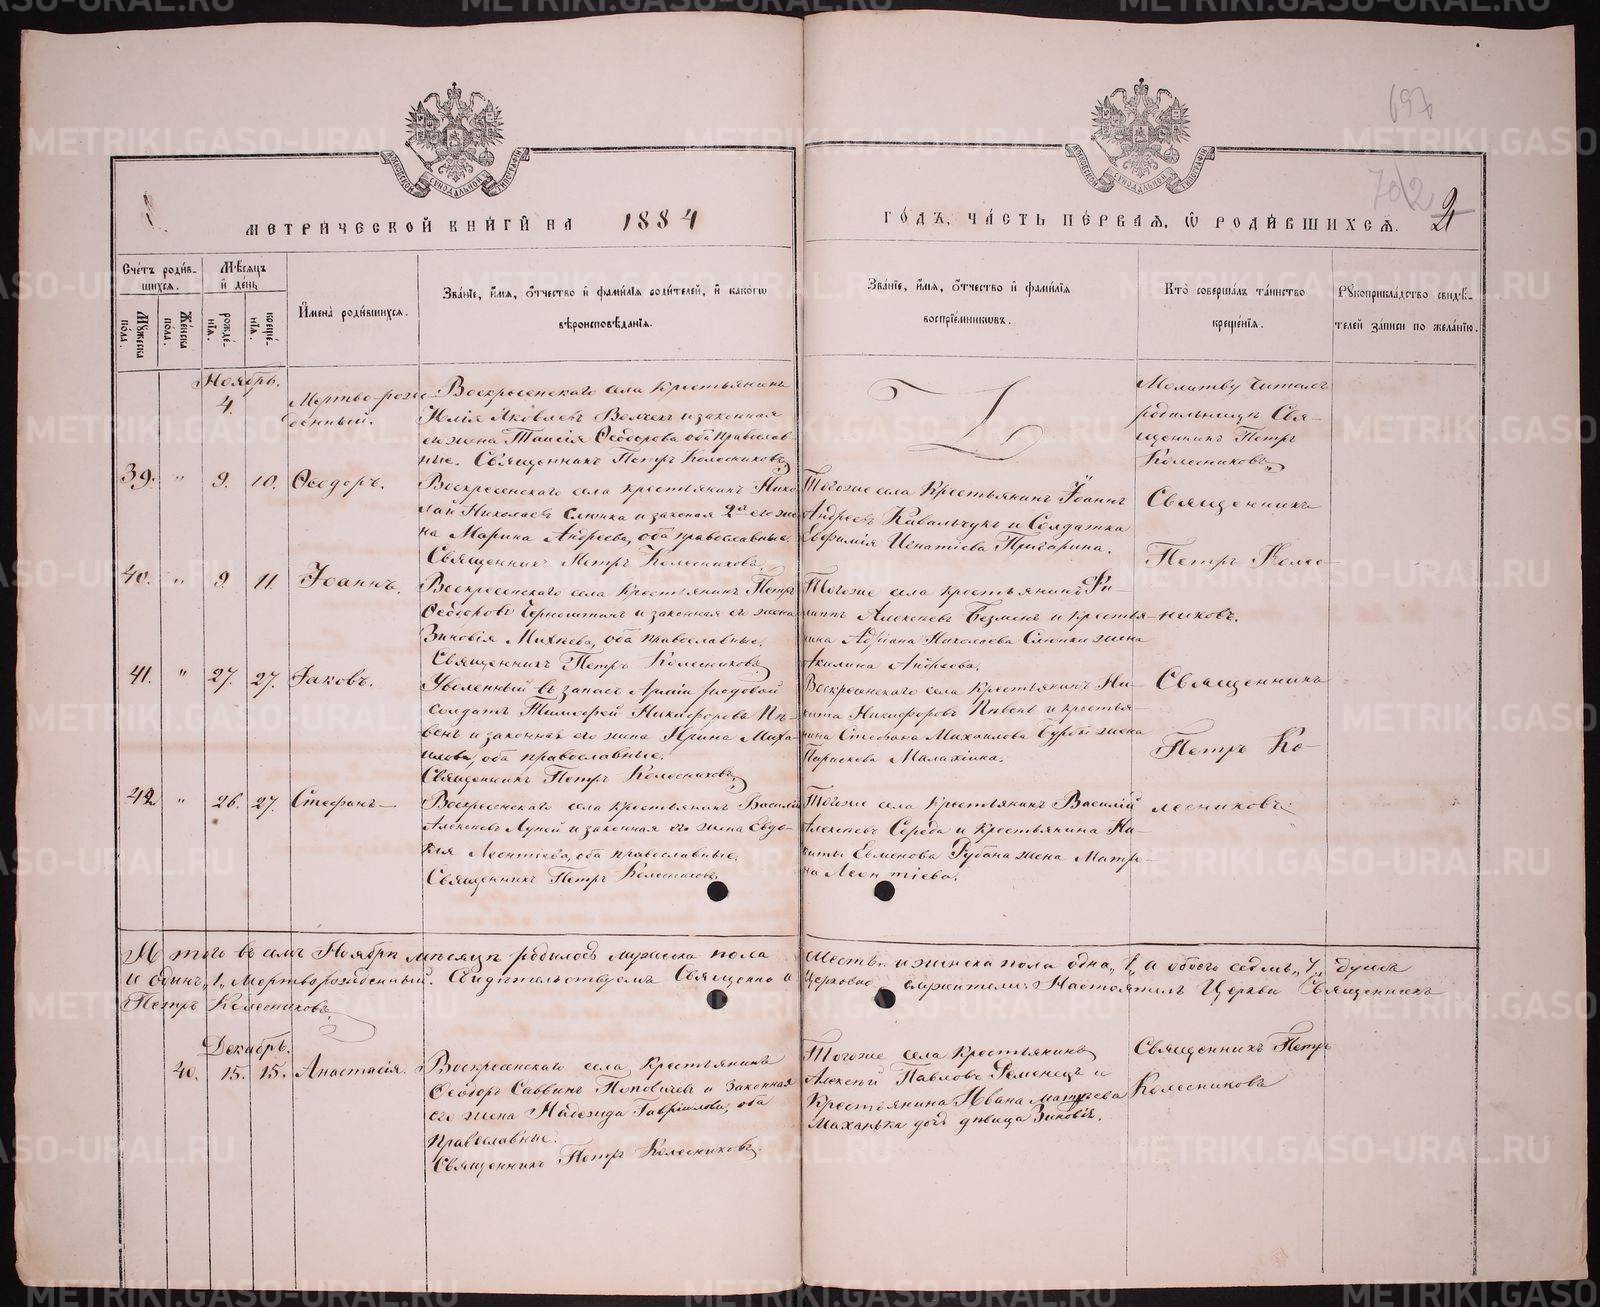 METRIKI.GASO-URAL.RU
697
702
2
МЕТРИЧЕСКОЙ КНИГИ НА 1884
ГОДЪ, ЧАСТЬ ПЕРВАЯ, Ѡ РОДИВШИХСЯ.
Счетъ родившихся.
Мужеска пола.
Женска пола.
Мѣсяцъ и день
рожденія.
крещенія.
Имена родившихся.
Званіе, имя, отчество и фамилія родителей, и какого
вѣроисповѣданія.
Званіе, имя, отчество и фамилія
воспріемниковъ.
Кто совершалъ таинство
крещенія.
Рукоприкладство свидѣ-
телей записи по желанію.
Ноябрь.
4.
Мертво-рож-
денный.
Воскресенскаго села Крестьянинъ
Яковлевъ и законная
его жена Таисія Ѳеодорова оба православ-
ные. Священникъ Петръ Колесниковъ
Молитву читалъ
родильницѣ Свя-
щенникъ Петръ
Колесниковъ
39. " 9. 10. Ѳеодоръ.
Воскресенскаго села крестьянинъ Нико
лай Николаевъ Слюнка и законая 2я его же
на Марина Андреева, оба православные.
Священникъ Петръ Колесниковъ.
Тогоже села Крестьянинъ Іоаннъ
Андреевъ Кавальчукъ и Солдатка
Евфимія Игнатіева Пригарина.
Священникъ
Петръ Колес-
40. " 9 11. Іоаннъ.
Воскресенскаго села Крестьянинъ Петръ
Ѳеодоровъ Черноштанъ и законная его жена
Зиновія Михѣева, оба православные.
Священникъ Петръ Колесниковъ
Тогоже села крестьянинъ Фи-
липпъ Алексѣевъ Безменъ и крестья-
нина Адріана Николаева Слюнки жена
Акилина Андреева.
никовъ.
41. " 27. 27. Іаковъ.
Уволенный въ запасъ Арміи рядовой
солдатъ Тимофей Никифоровъ Пи-
вень и законная его жена Ирина Миха-
илова, оба православные.
Священникъ Петръ Колесниковъ
Воскресенскаго села Крестьянинъ Ни-
кита Никифоровъ Пивень и крестья-
нина Стефана Михаилова Бурды жена
Параскева Малахіина.
Священникъ
Петръ Ко-
42 " 26. 27. Стефанъ
Воскресенскаго села крестьянинъ Василій
Алексѣевъ Лупей и законная его жена Евдо-
кія Леонтіева, оба православные.
Священникъ Петръ Колесниковъ.
Тогоже села Крестьянинъ Василій
Алексѣевъ Середа и Крестьянина Ни-
киты Евменова Губана жена Матре-
на Леонтіева.
лесниковъ.
Итого въ семъ Ноябрѣ мѣсяцѣ родилось мужеска пола шесть и женска пола одна "1" а обоего седмь "7" душъ
и одинъ "1" Мертворожденный. Свидѣтельствуемъ Священно и Церковно служители: Настоятель Церкви Священникъ
Петръ Колесниковъ.
Декабрь.
40. 15. 15. Анастасія.
Воскресенскаго села, Крестьянинъ
Ѳеодоръ Саввинъ Поповичевъ и Законная
его жена Надежда Гавріилова, оба
православные.
Священникъ Петръ Колесниковъ.
Тогоже села Крестьянинъ
Алексѣй Павловъ Ременецъ и
Крестьянина Ивана Матвѣева
Маханька дочь дѣвица Зиновія.
Священникъ Петръ
Колесниковъ